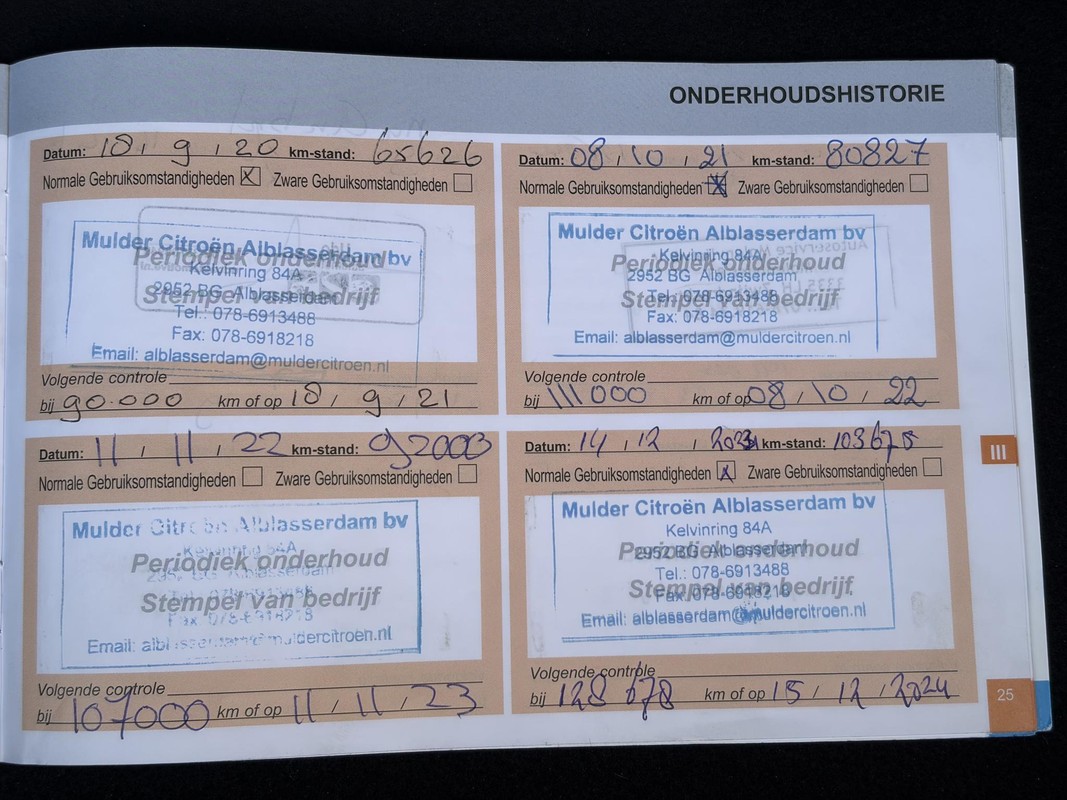 ONDERHOUDSHISTORIE
Datum: 18, 9, 20 km-stand: 65626
Normale Gebruiksomstandigheden X Zware Gebruiksomstandigheden
Mulder Citroën Alblasserdam bv
Periodiek onderhoud
Kelvinring 84A
2952 BG Alblasserdam
Stempel van bedrijf
Tel.: 078-6913488
Fax: 078-6918218
Email: alblasserdam@muldercitroen.nl
Volgende controle
bij 90.000 km of op 18, 9, 21
Datum: 08, 10, 21 km-stand: 80827
Normale Gebruiksomstandigheden X Zware Gebruiksomstandigheden
Mulder Citroën Alblasserdam bv
Kelvinring 84A
Periodiek onderhoud
2952 BG Alblasserdam
Tel.: 078-6913488
Stempel van bedrijf
Fax: 078-6918218
Email: alblasserdam@muldercitroen.nl
Volgende controle
bij 111000 km of op 08, 10, 22
Datum: 11, 11, 22 km-stand: 92000
Normale Gebruiksomstandigheden Zware Gebruiksomstandigheden
Mulder Citroën Alblasserdam bv
Kelvinring 84A
Periodiek onderhoud
2952 BG Alblasserdam
Stempel van bedrijf
Fax: 078-6918218
Email: alblasserdam@muldercitroen.nl
Volgende controle
bij 107000 km of op 11, 11, 23
Datum: 14, 12, km-stand: 103678
Normale Gebruiksomstandigheden X Zware Gebruiksomstandigheden
Mulder Citroën Alblasserdam bv
Kelvinring 84A
Periodiek onderhoud
2952 BG Alblasserdam
Tel.: 078-6913488
Stempel van bedrijf
Fax: 078-6918218
Email: alblasserdam@muldercitroen.nl
Volgende controle
bij 128 678 km of op 15, 12, 2024
III
25